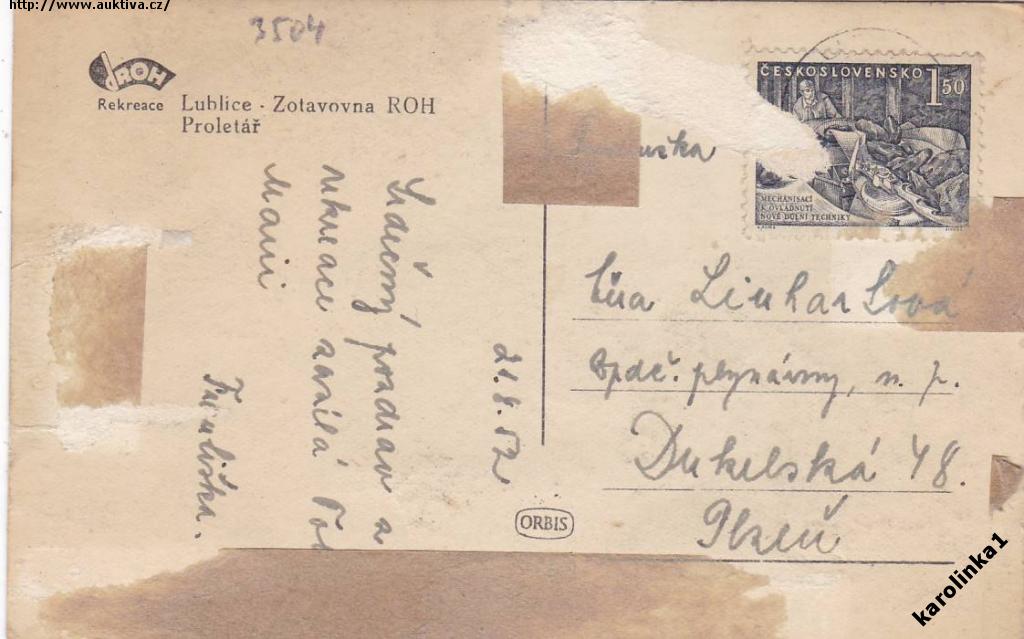 http://www.auktiva.cz/
3504
ROH
Rekreace
Lublice - Zotavovna ROH
Proletář
ČESKOSLOVENSKO 1 50
MECHANISACÍ
K OVLÁDNUTÍ
NOVÉ DŮLNÍ TECHNIKY
Srdečný pozdrav z
rekreace zasílá Vás
Mani
21.8.52
Linhartová
Zpdč. plynárny, n. p.
Dukelská 48.
Plzeň
ORBIS
karolinka1